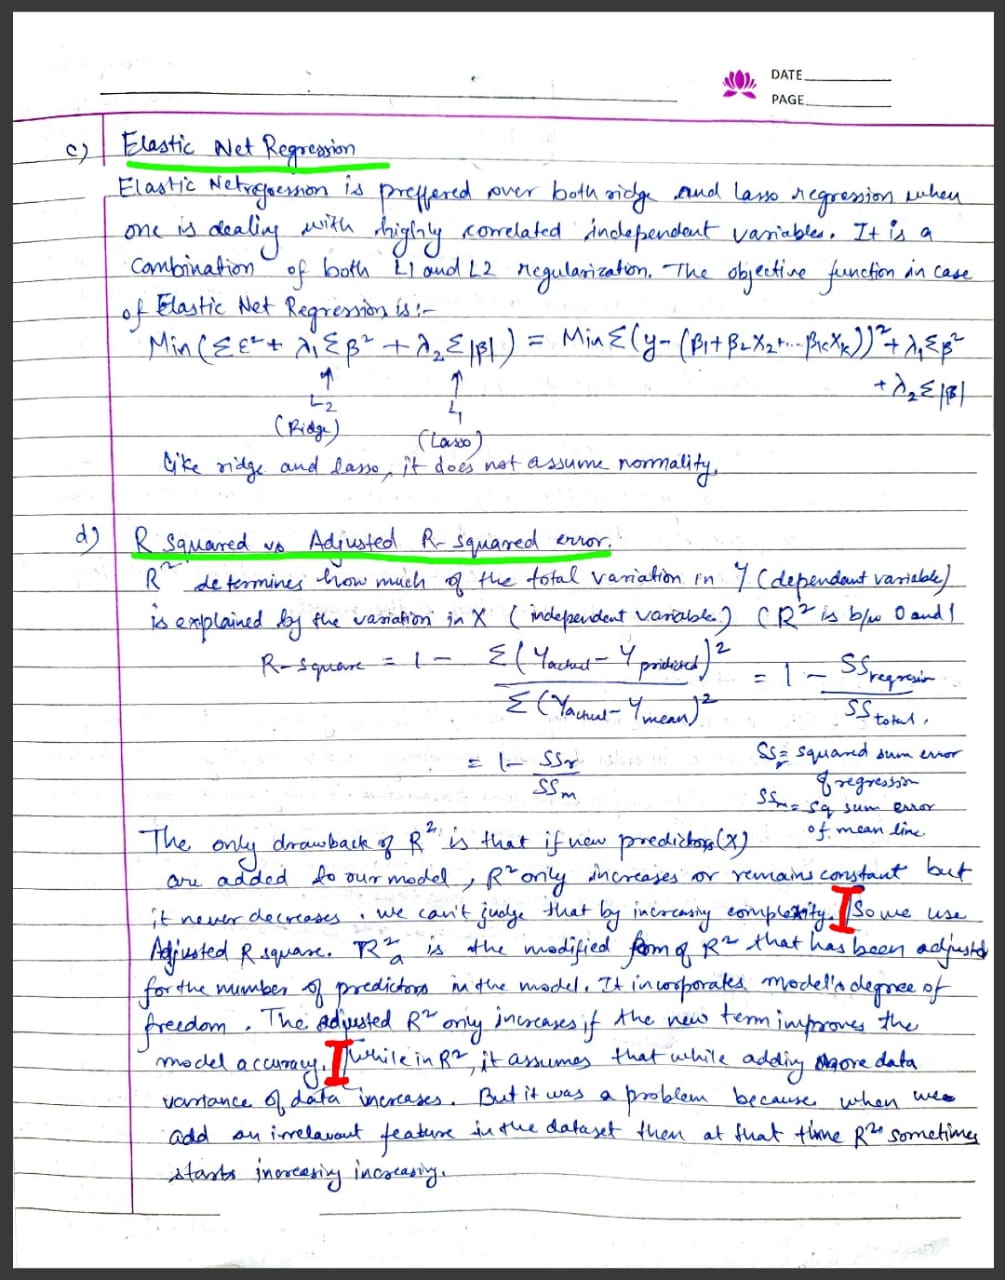 DATE
PAGE
c) Elastic Net Regression
Elastic Net regression is preffered over both ridge and lasso regression when
one is dealing with highly correlated independent variables. It is a
combination of both L1 and L2 regularization. The objective function in case
of Elastic Net Regression is :-
Min (Σε² + λ₁Σβ² + λ₂Σ|β|) = Min Σ(y - (β₁ + β₂X₂ + ... βₖXₖ))² + λ₁Σβ²
+ λ₂Σ|β|
↑ ↑
L2 L1
(Ridge) (Lasso)
like ridge and lasso, it does not assume normality.
d) R squared vs Adjusted R-squared error.
R² determines how much of the total variation in Y (dependent variable)
is explained by the variation in X (independent variable) (R² is b/w 0 and 1
R-square = 1 - Σ(Yactual - Ypridicted)² / Σ(Yactual - Ymean)² = 1 - SSregression / SStotal.
= 1 - SSr / SSm
SSr = squared sum error
of regression
SSm = sq sum error
of mean line
The only drawback of R² is that if new predictors (X)
are added to our model, R² only increases or remains constant but
it never decreases. we can't judge that by increasing complexity. So we use
Adjusted R square. R²a is the modified form of R² that has been adjusted
for the number of predictors in the model. It incorporates model's degree of
freedom. The adjusted R² only increases if the new term improves the
model accuracy. While in R², it assumes that while adding more data
variance of data increases. But it was a problem because when we
add an irrelavant feature in the dataset then at that time R² sometimes
starts increasing increasing.